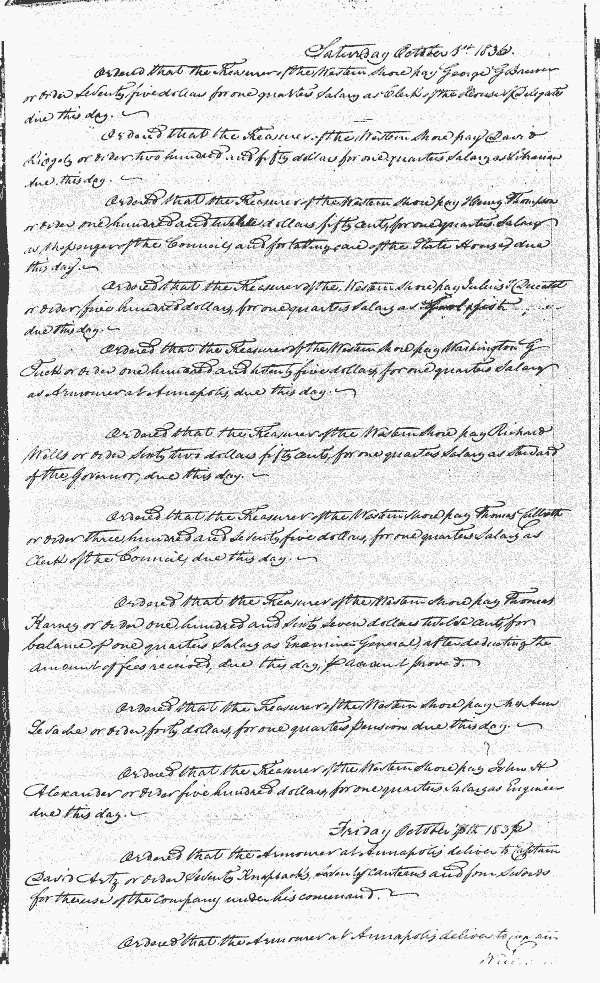 Saturday October 1st 1836.
Ordered that the Treasurer of the Western Shore pay George G Brewer
or order Seventy five dollars for one quarters Salary as Clerk of the House of Delegates
due this day.
Ordered that the Treasurer of the Western Shore pay David
Ridgely or order two hundred and fifty dollars for one quarters Salary as Librarian
due this day.
Ordered that the Treasurer of the Western Shore pay Henry Thompson
or order one hundred and twelve dollars fifty cents, for one quarters Salary
as Messenger of the Council, and for taking care of the State House, due
this day.
Ordered that the Treasurer of the Western Shore pay Julius T Ducatel
or order five hundred dollars, for one quarters Salary as Geologist
due this day.
Ordered that the Treasurer of the Western Shore pay Washington G
Tuck or order one hundred and twenty five dollars, for one quarters Salary
as Armourer at Annapolis, due this day.
Ordered that the Treasurer of the Western Shore pay Richard
Wells or order Sixty two dollars fifty cents, for one quarters Salary as Steward
of the Governor, due this day.
Ordered that the Treasurer of the Western Shore pay Thomas Culbreth
or order Three hundred and Seventy five dollars, for one quarters Salary as
Clerk of the Council, due this day.
Ordered that the Treasurer of the Western Shore pay Thomas
Karney or order one hundred and Sixty Seven dollars twelve cents, for
balance of one quarters Salary as Examiner General, after dedicating the
amount of fees received, due this day, & account proved.
Ordered that the Treasurer of the Western Shore pay Mrs Ann
or order forty dollars, for one quarters Pension due this day.
Ordered that the Treasurer of the Western Shore pay John H
Alexander or order five hundred dollars, for one quarters Salary as Engineer
due this day.
Friday October 1836
Ordered that the Armourer at Annapolis deliver to Captain
David Artz or order Seventy Knapsacks, seventy canteens and four Swords
for the use of the company under his command.
Ordered that the Armourer at Annapolis deliver to